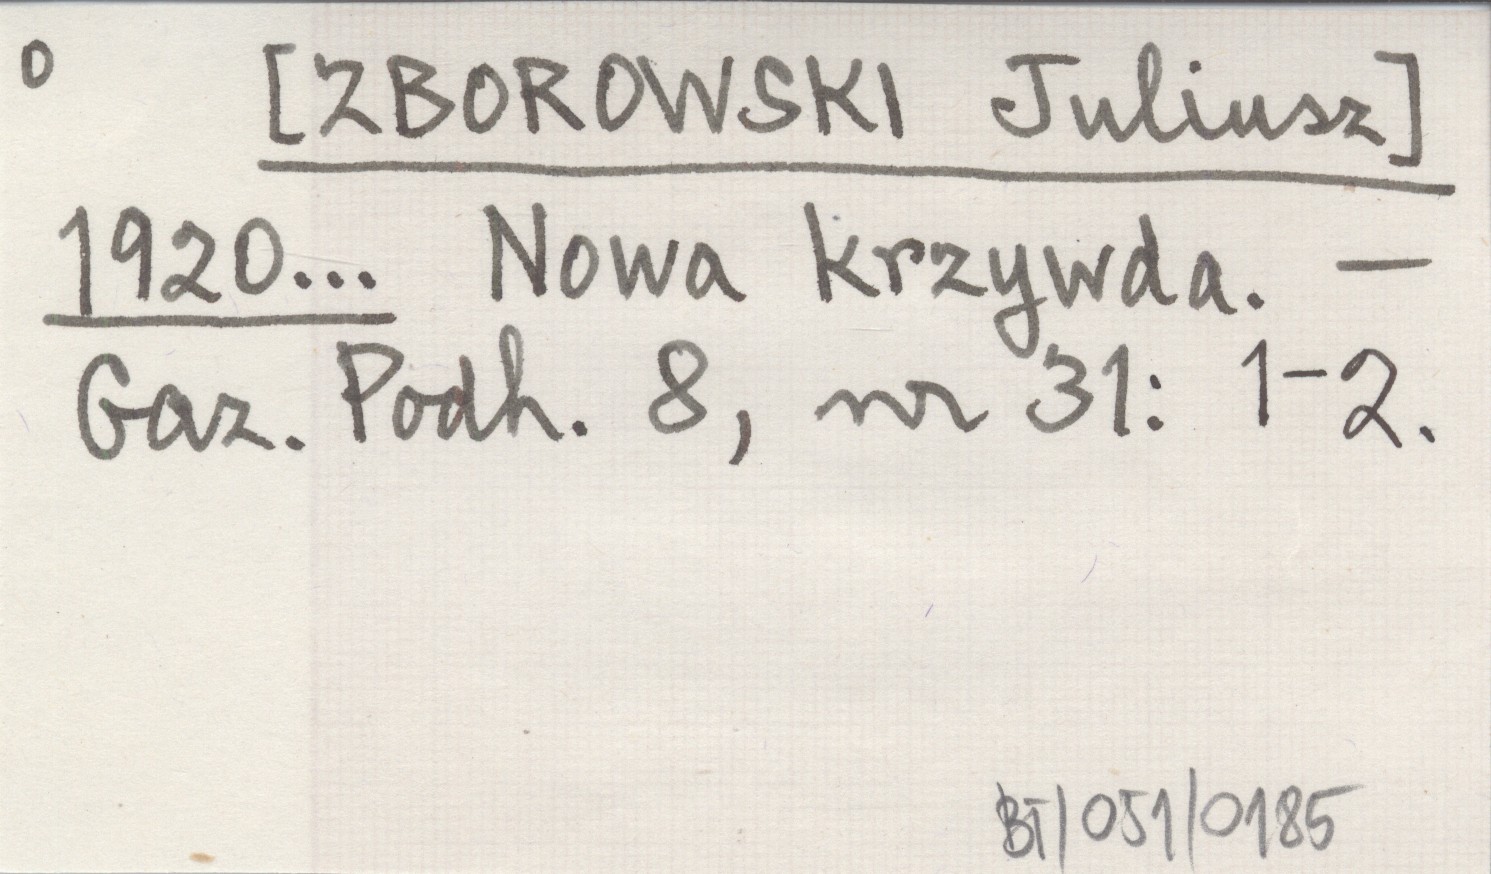 o [ZBOROWSKI Juliusz]
1920... Nowa krzywda. —
Gaz. Podh. 8, nr 31: 1-2.
BT/051/0185